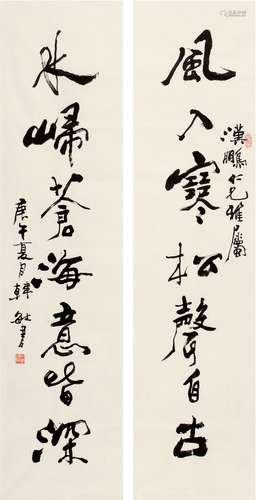 風入寒松聲自古
漢鵬仁兄雅屬
水歸蒼海意皆深
庚午夏月韓敏書